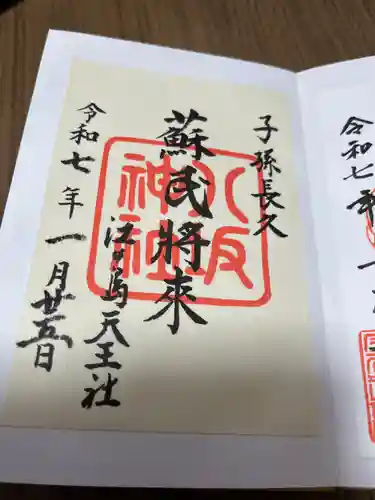 子孫長久
蘇民將來
八坂神社
江ノ島天王社
令和七年一月廿五日
令和七年
一